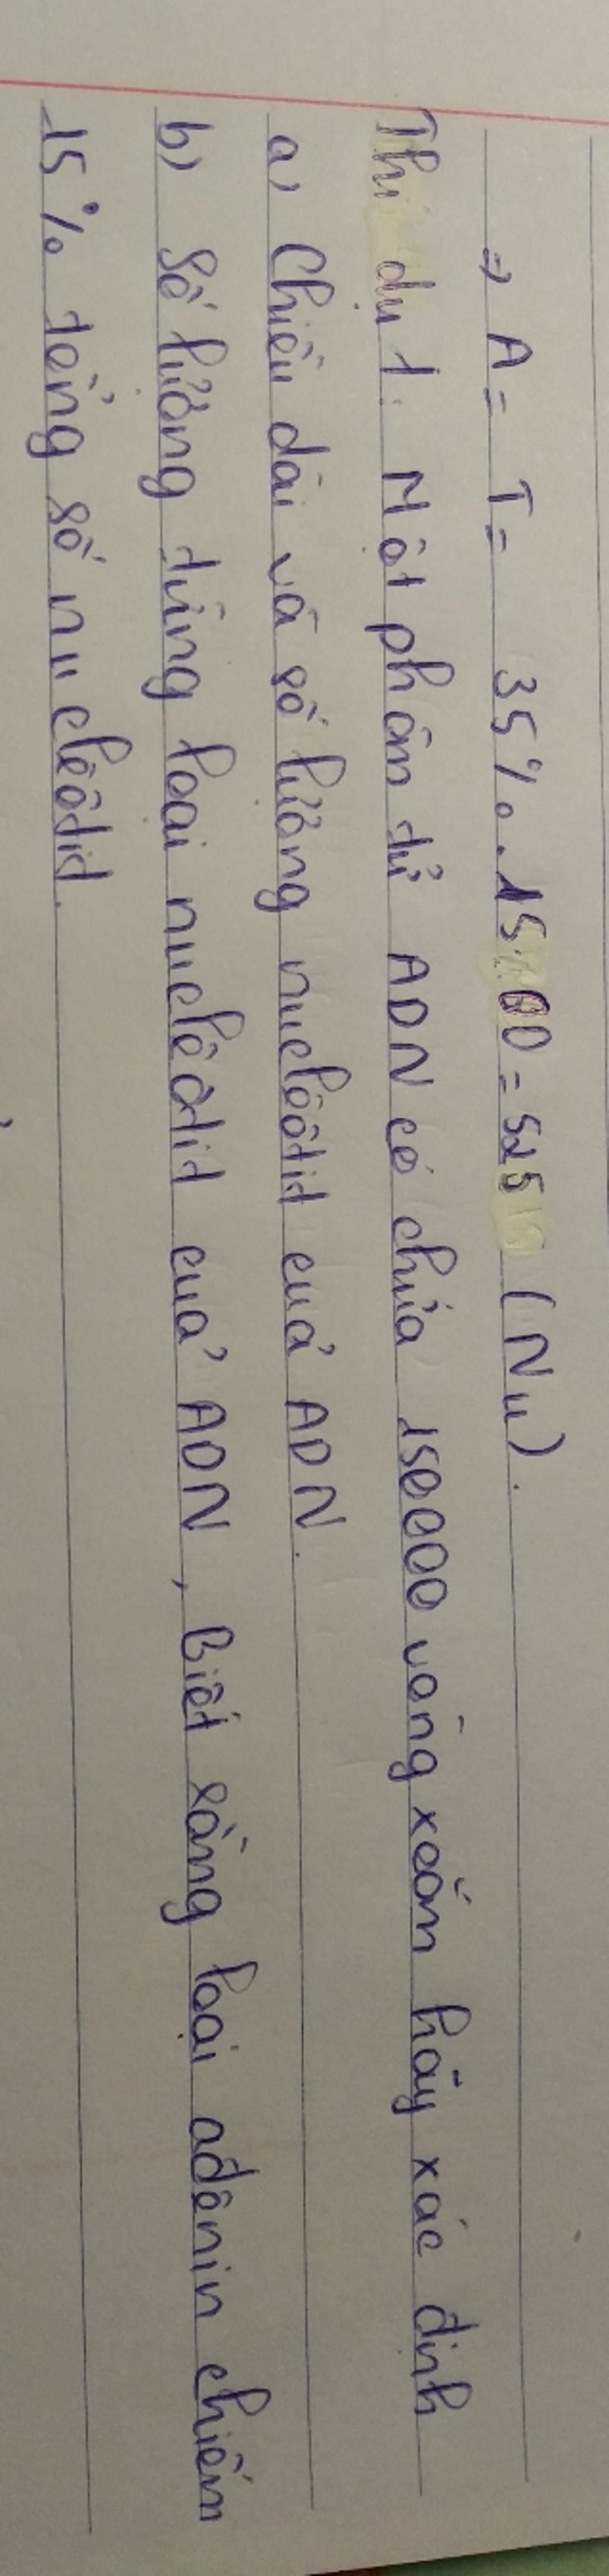 => A = T = 35%.1500 = 525 (Nu).
Thí dụ 1: Một phân tử ADN có chứa 150000 vòng xoắn hãy xác định
a) Chiều dài và số lượng nuclêôtit của ADN.
b) Số lượng từng loại nuclêôtit của ADN, Biết rằng loại ađênin chiếm
15% tổng số nuclêôtit.